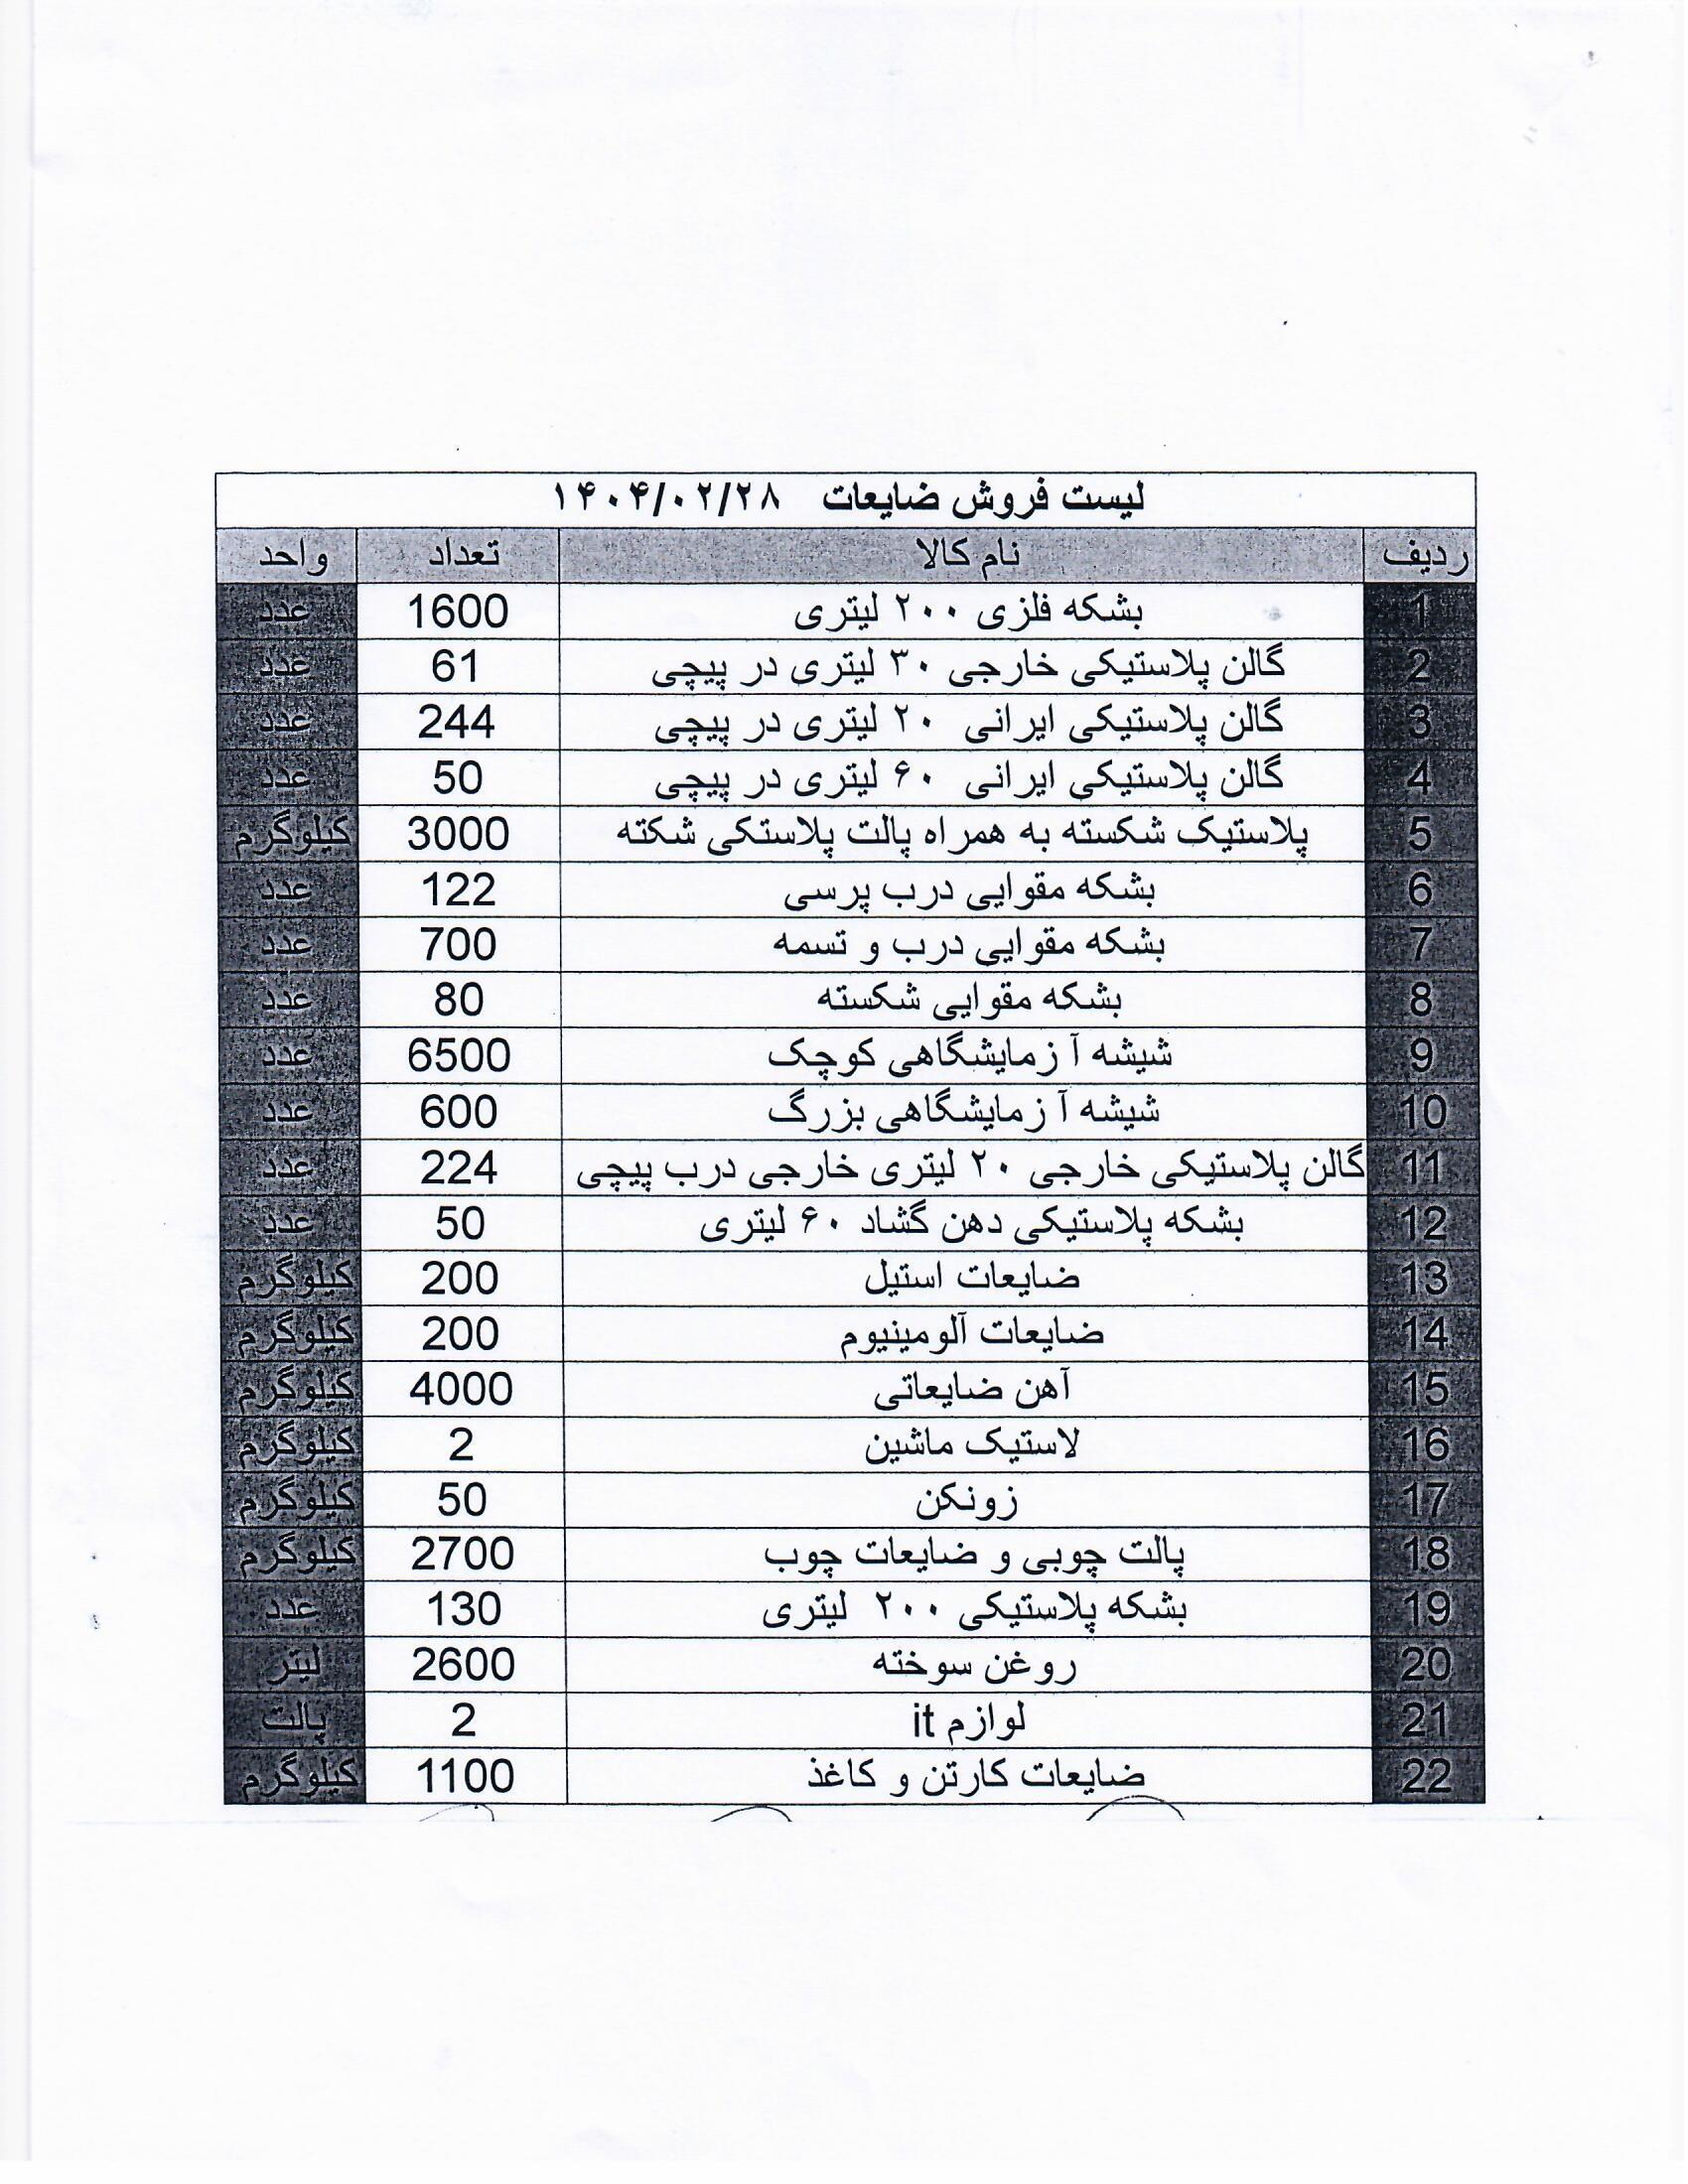 لیست فروش ضایعات ۱۴۰۴/۰۲/۲۸
ردیف نام کالا تعداد واحد
1 بشکه فلزی ۲۰۰ لیتری 1600 عدد
2 گالن پلاستیکی خارجی ۳۰ لیتری در پیچی 61 عدد
3 گالن پلاستیکی ایرانی ۲۰ لیتری در پیچی 244 عدد
4 گالن پلاستیکی ایرانی ۶۰ لیتری در پیچی 50 عدد
5 پلاستیک شکسته به همراه پالت پلاستکی شکته 3000 کیلوگرم
6 بشکه مقوایی درب پرسی 122 عدد
7 بشکه مقوایی درب و تسمه 700 عدد
8 بشکه مقوایی شکسته 80 عدد
9 شیشه آ زمایشگاهی کوچک 6500 عدد
10 شیشه آ زمایشگاهی بزرگ 600 عدد
11 گالن پلاستیکی خارجی ۲۰ لیتری خارجی درب پیچی 224 عدد
12 بشکه پلاستیکی دهن گشاد ۶۰ لیتری 50 عدد
13 ضایعات استیل 200 کیلوگرم
14 ضایعات آلومینیوم 200 کیلوگرم
15 آهن ضایعاتی 4000 کیلوگرم
16 لاستیک ماشین 2 کیلوگرم
17 زونکن 50 کیلوگرم
18 پالت چوبی و ضایعات چوب 2700 کیلوگرم
19 بشکه پلاستیکی ۲۰۰ لیتری 130 عدد
20 روغن سوخته 2600 لیتر
21 لوازم it 2 پالت
22 ضایعات کارتن و کاغذ 1100 کیلوگرم